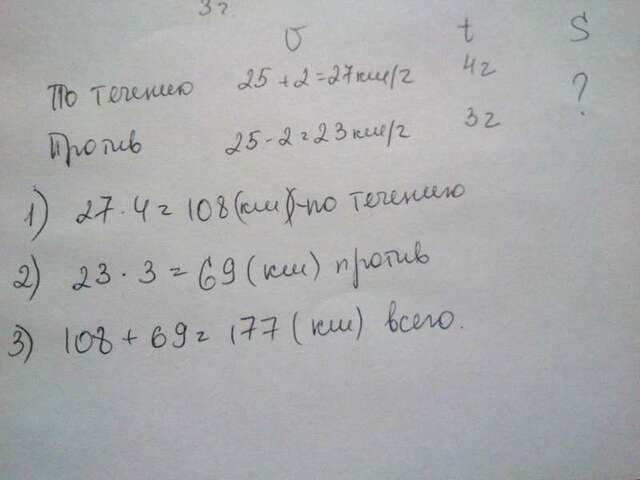 3г
υ t S
По течению 25+2=27км/г 4г ?
Против 25-2=23км/г 3г
1) 27·4=108(км)-по течению
2) 23·3=69(км) против
3) 108+69=177(км) всего.